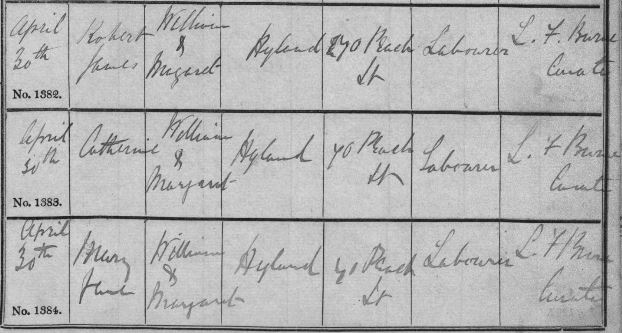 April
30th
No. 1382.
Robert
James
William
&
Margaret
Hyland
70 Peach
St
Labourer
L. F. Burne
Curate
April
30th
No. 1383.
Catherine
William
&
Margaret
Hyland
70 Peach
St
Labourer
L. F Burne
Curate
April
30th
No. 1384.
Mary
Jane
William
&
Margaret
Hyland
70 Peach
St
Labourer
L. F Burne
Curate